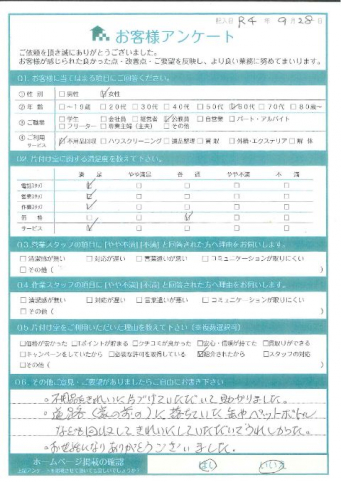 記入日 R4 年 9 月 28 日
お客様アンケート
ご依頼を頂き誠にありがとうございました。
お客様が感じられた良かった点・改善点・ご要望を反映し、より良い業務に努めてまいります。
Q1.お客様に当てはまる項目にご回答ください。
①性 別 □男性 □女性
②年 齢 □~19歳 □20代 □30代 □40代 □50代 □60代 □70代 □80歳~
③ご職業 □学生 □会社員 □経営者 □公務員 □自営業 □パート・アルバイト
□フリーター □専業主婦(主夫) □その他
④ご利用サービス □不用品回収 □ハウスクリーニング □遺品整理 □買取 □外構・エクステリア □解体
Q2.片付け堂に関する満足度を教えて下さい。
満 足 やや満足 普 通 やや不満 不 満
電話スタッフ □ □ □ □ □
営業スタッフ □ □ □ □ □
作業スタッフ □ □ □ □ □
価 格 □ □ □ □ □
サービス □ □ □ □ □
Q3.営業スタッフの項目に[やや不満][不満]と回答された方へ理由をお伺いします。
□清潔感が無い □対応が遅い □言葉遣いが悪い □コミュニケーションが取りにくい
□その他( )
Q4.作業スタッフの項目に[やや不満][不満]と回答された方へ理由をお伺いします。
□清潔感が無い □対応が遅い □言葉遣いが悪い □コミュニケーションが取りにくい
□その他( )
Q5.片付け堂をご利用いただいた理由を教えて下さい(※複数選択可)
□価格が安かった □ポイントが貯まる □クチコミが良かった □安心・信頼が持てた □買取りができる
□キャンペーンをしていたから □必要な許可を取得している □紹介されたから □スタッフの対応
□その他( )
Q6.その他、ご意見・ご要望がありましたらご自由にお書き下さい
・不用品をきれいに片づけていただいて助かりました。
・道路(家の前の)に落ちていた缶やペットボトル
なども回収してきれいにしていただいてうれしかった。
・お世話になりありがとうございました。
ホームページ掲載の確認
はい いいえ